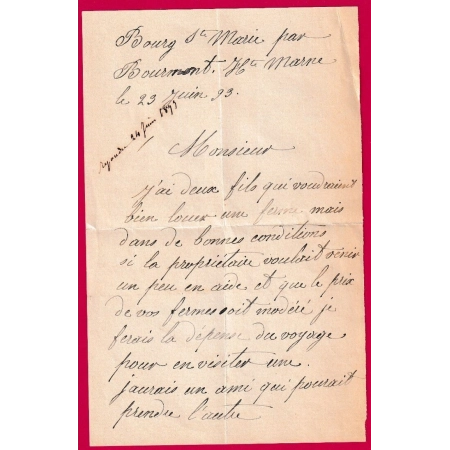 Bourg Ste Marie par
Bourmont. Hte Marne
le 23 Juin 93.
répondu 24 Juin 1893
Monsieur
J'ai deux fils qui voudraient
bien louer une ferme mais
dans de bonnes conditions
si la propriétaire voulait venir
un peu en aide et que le prix
de vos fermes soit modéré je
ferais la dépense du voyage
pour en visiter une.
jaurais un ami qui pourait
prendre l'autre